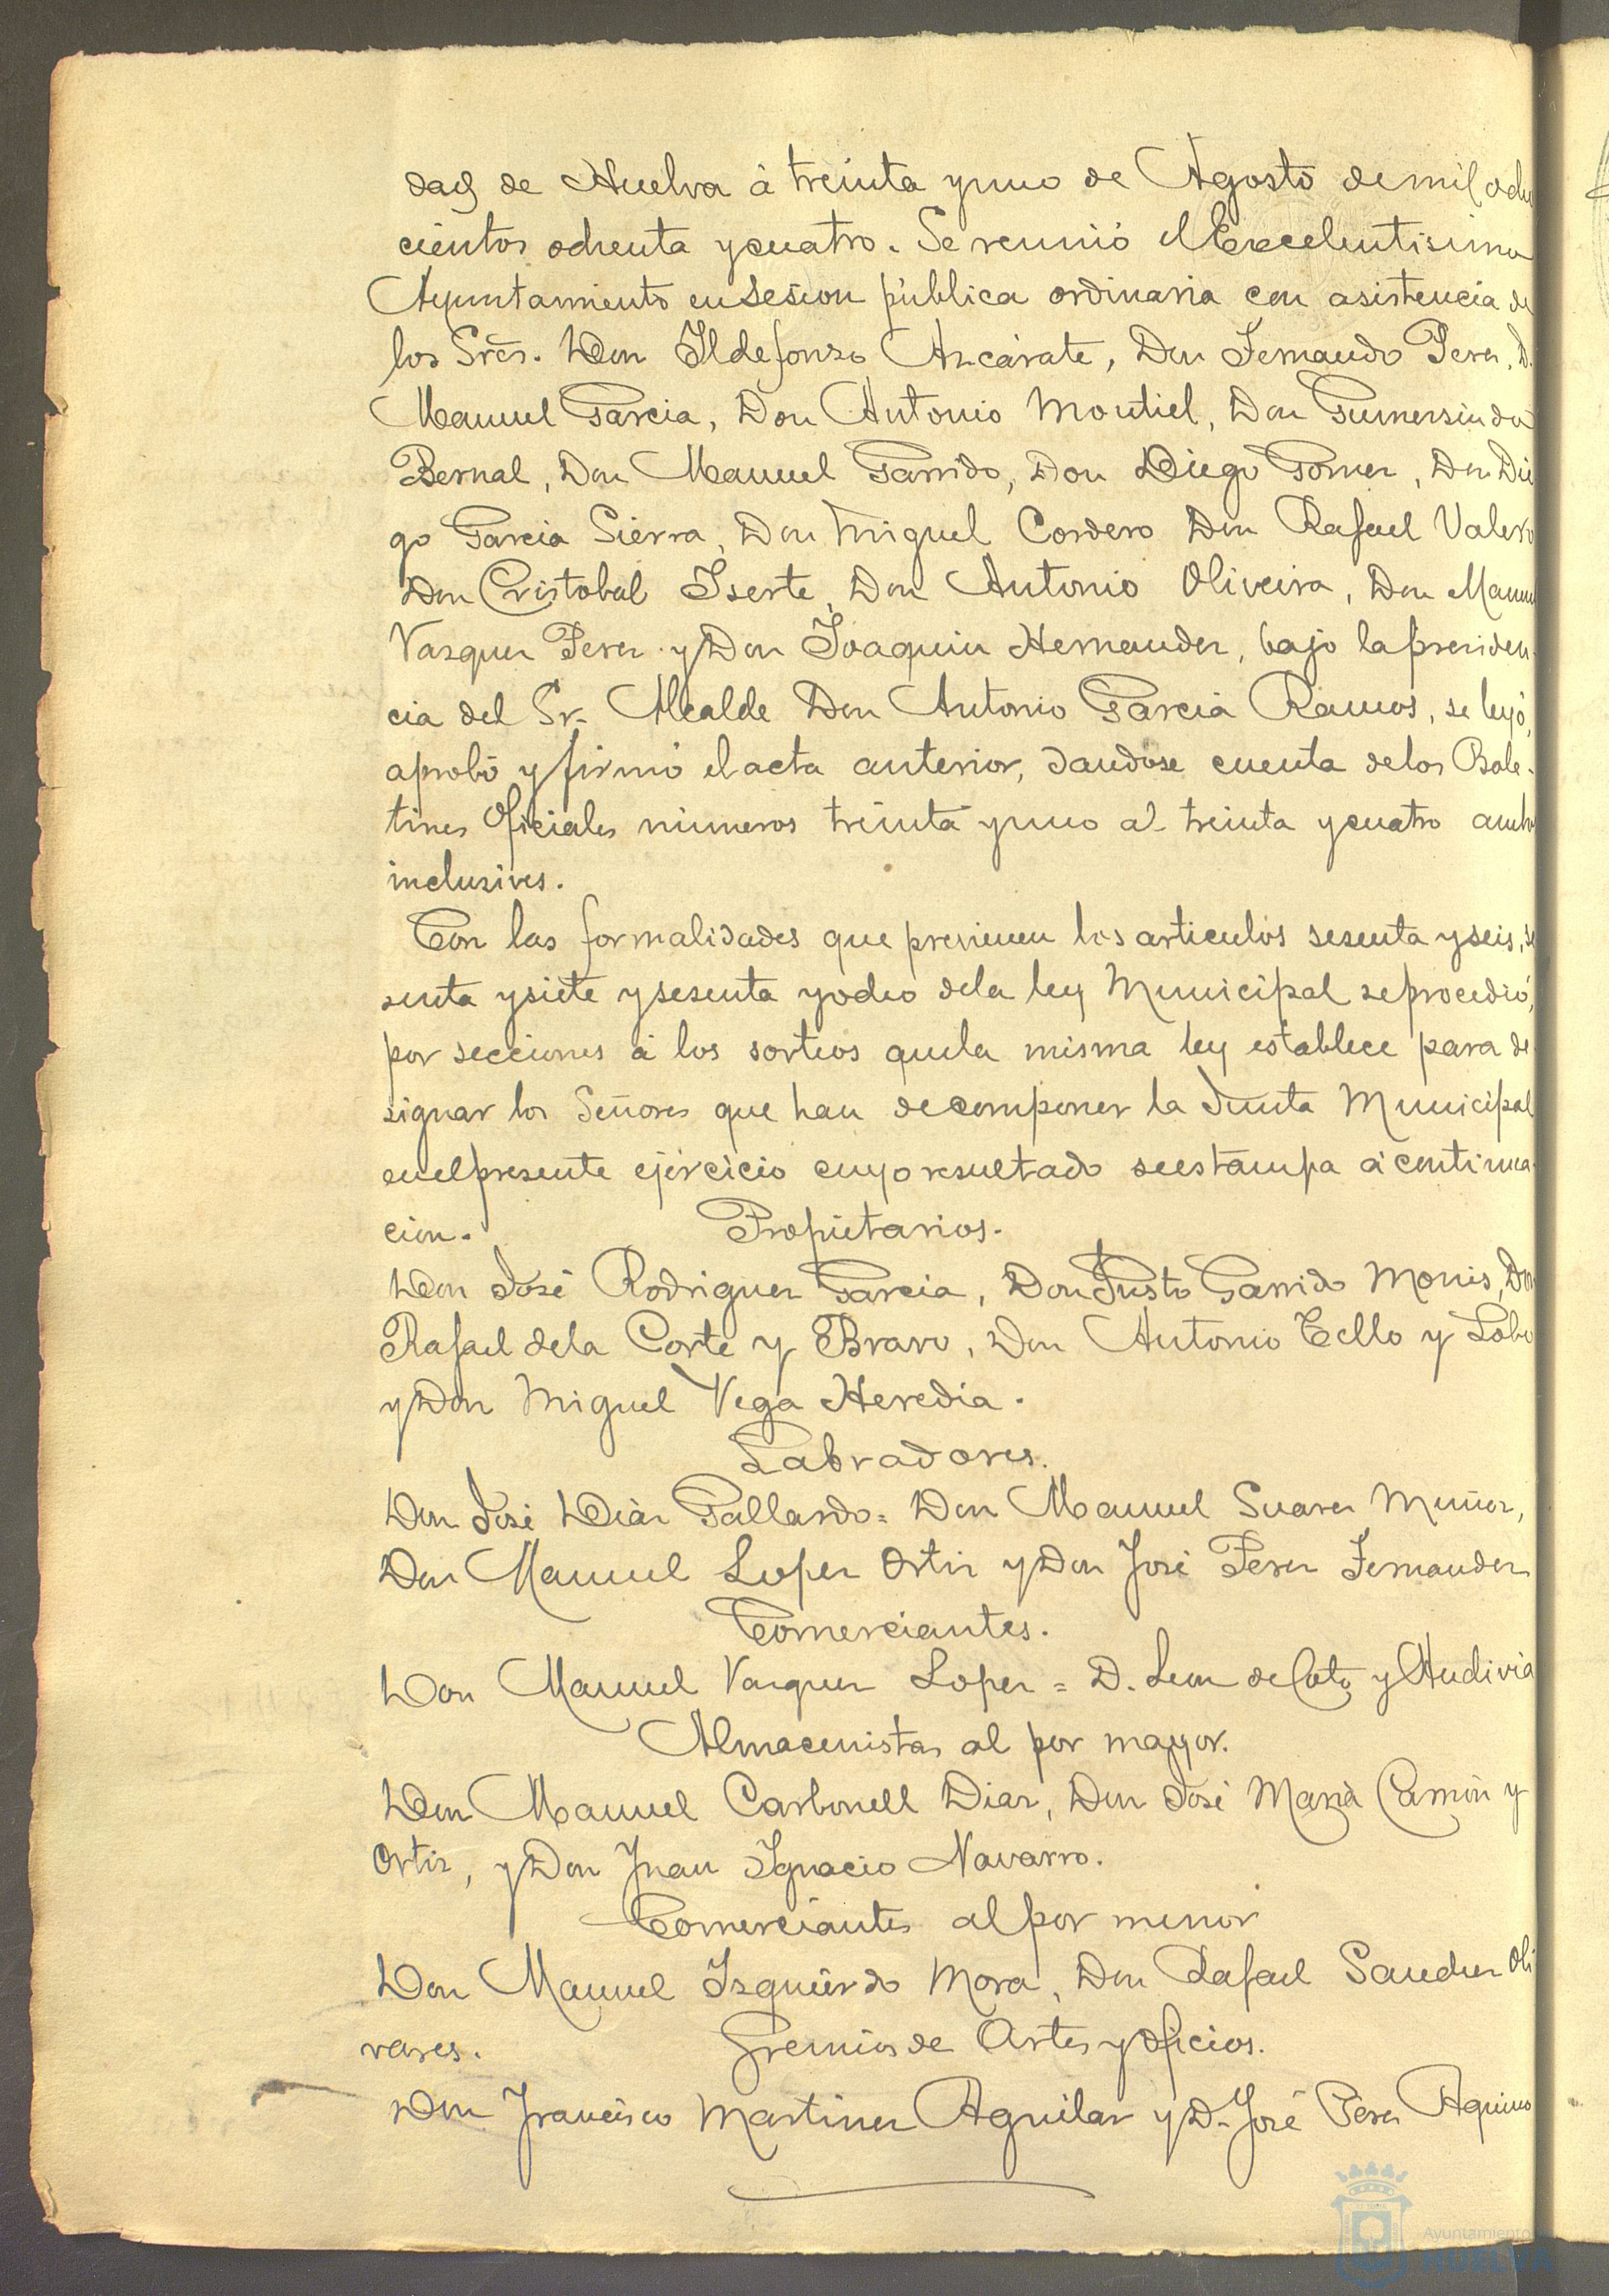 dad de Huelva á treinta y uno de Agosto de mil ocho
cientos ochenta y cuatro. Se reunió el Excelentisimo
Ayuntamiento en Sesion pública ordinaria con asistencia de
los Sres. Don Ildefonso Azcárate, Don Fernando Perez, D.
Manuel Garcia, Don Antonio Montiel, Don Gumersindo
Bernal, Don Manuel Garrido, Don Diego Gomez, Don Die
go Garcia Sierra, Don Miguel Cordero Don Rafael Valero
Don Cristobal Iserte, Don Antonio Oliveira, Don Manuel
Vazquez Perez y Don Joaquin Hernandez, bajo la presiden
cia del Sr. Alcalde Don Antonio Garcia Ramos, se leyó,
aprobó y firmó el acta anterior, dandose cuenta de los Bole-
tines Oficiales números treinta y uno al treinta y cuatro ambos
inclusives.
Con las formalidades que previenen los articulos sesenta y seis, se
senta y siete y sesenta y ocho de la ley Municipal se procedió,
por secciones á los sorteos que la misma ley establece para de
signar los Señores que han de componer la Junta Municipal
en el presente ejercicio cuyo resultado se estampa á continua-
cion. Propietarios.
Don José Rodriguez Garcia, Don Justo Garrido Monis, Don
Rafael de la Corte y Bravo, Don Antonio Tello y Lobo
y Don Miguel Vega Heredia.
Labradores.
Don José Diaz Gallardo = Don Manuel Suarez Muñoz,
Don Manuel Lopez Ortiz y Don José Perez Fernandez
Comerciantes.
Don Manuel Vazquez Lopez = D. Leon de Coto y Hudivia
Almacenistas al por mayor.
Don Manuel Carbonell Diaz, Don José Maria Carrion y
Ortiz, y Don Juan Ignacio Navarro.
Comerciantes al por menor
Don Manuel Izquierdo Mora, Don Rafael Sanchez Oli
vares. Gremios de Artes y oficios.
Don Francisco Martinez Aguilar y D. José Perez Aquino
Ayuntamiento
HUELVA